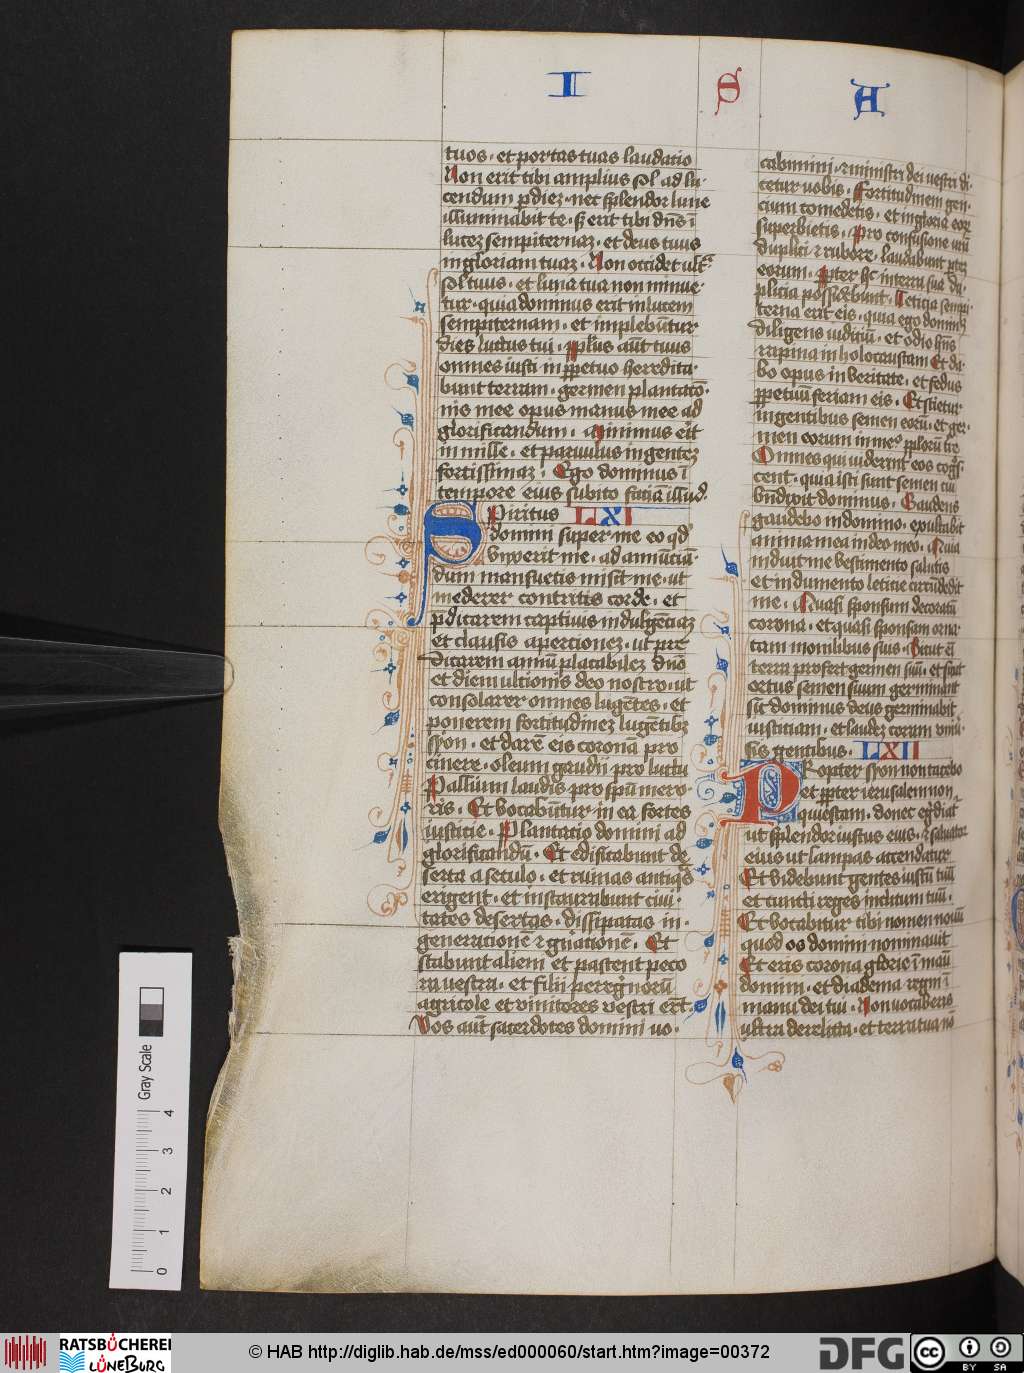 I S A
tuos · et portas tuas laudatio
Non erit tibi amplius sol ad lu·
cendum p diez · nec splendor lune
illuminabit te · s; erit tibi dn̄s ī
lucez sempiternaz · et deus tuus
in gloriam tuaz · Non occidet ult᷑
sol tuus · et luna tua non minue·
tur · quia dominus erit in lucem
sempiternam · et implebūtur
dies luctus tui · Pplūs aūt tuus
omnes iusti in ppetuo heredita·
bunt terram · germen plantatō·
nis mee opus manus mee ad
glorificandum · Minimus erit
in mille · et paruulus in gentez
fortissimaz · Ego dominus ī
tempore eius subito faciā illud·
Spiritus LXI
domini super me eo qd
vnxerit me · ad annūciā·
dum mansuetis misit me · ut
mederer contritis corde · et
p̄dicarem captiuis indulgēciaz
et clausis apercionez · ut pre
dicarem annū placabilez dn̄o
et diem ultionis deo nostro · ut
consolarer omnes lugētes · et
ponerem fortitudinez lugētibz
syon · et darē eis coronā pro
cinere · oleum gaudij pro luctu
Pallium laudis pro spū mero·
ris · Et vocabūtur in ea fortes
iusticie · Plantatio domini ad
glorificandū · Et edificabunt de
serta a seculo · et ruinas antiqs
erigent · et instaurabunt ciui·
tates desertas · dissipatas in·
generacionē ⁊ gn̄ationē · Et
stabunt alieni et pascent peco
ra vestra · et filij peregrinorū
agricole et vinitores vestri erūt·
Vos aūt sacerdotes domini uo·
cabimini · ⁊ ministri dei vestri di·
cetur uobis · Fortitudinem gen·
cium comedetis · et in gloria eoꝝ
superbietis · Pro confusione urā
duplici ⁊ rubore · laudabunt ptez
eorum · Ppter hc in terra sua du·
plicia possidebunt · Leticia sempi·
terna erit eis · quia ego dominus
diligens iudiciū · et odio hn̄s
rapinā in holocaustam Et da·
bo opus in veritate · et fedus
ppetuū feriam eis · Et scietur
in gentibus semen eorū · et ger·
men eorum in meo pplorū
Omnes qui viderint eos cogs·
cent · quia isti sunt semen cui
bn̄dixit dominus · Gaudens
gaudebo in domino · exultabit
anima mea in deo meo · Quia
induit me vestimento salutis
et indumento leticie circūdedit
me · Quasi sponsum decoratū
corona · et quasi sponsam orna·
tam monilibus suis · Sicut eī
terra profert germen suū · et sicut
ortus semen suum germinat
sic dominus deus germinabit
iusticiam · et laudez coram vniu̇·
sis gentibus · LXII
Propter syon non tacebo
et ppter ierusalem non
quiescam · donec egrediat᷑
ut splendor iustus eius · ⁊ saluator
eius ut lampas accendatur
Et videbunt gentes iustū tuū
et cuncti reges inclitum tuū ·
Et vocabitur tibi nomen nouū
quod os domini nominauit
Et eris corona glorie ī manū
domini · et diadema regni ī
manu dei tui · Non vocaberis
ultra derelicta · et terra tua nō
Gray Scale
0 1 2 3 4
RATSBÜCHEREI
LÜNEBURG
© HAB http://diglib.hab.de/mss/ed000060/start.htm?image=00372
DFG
cc BY SA